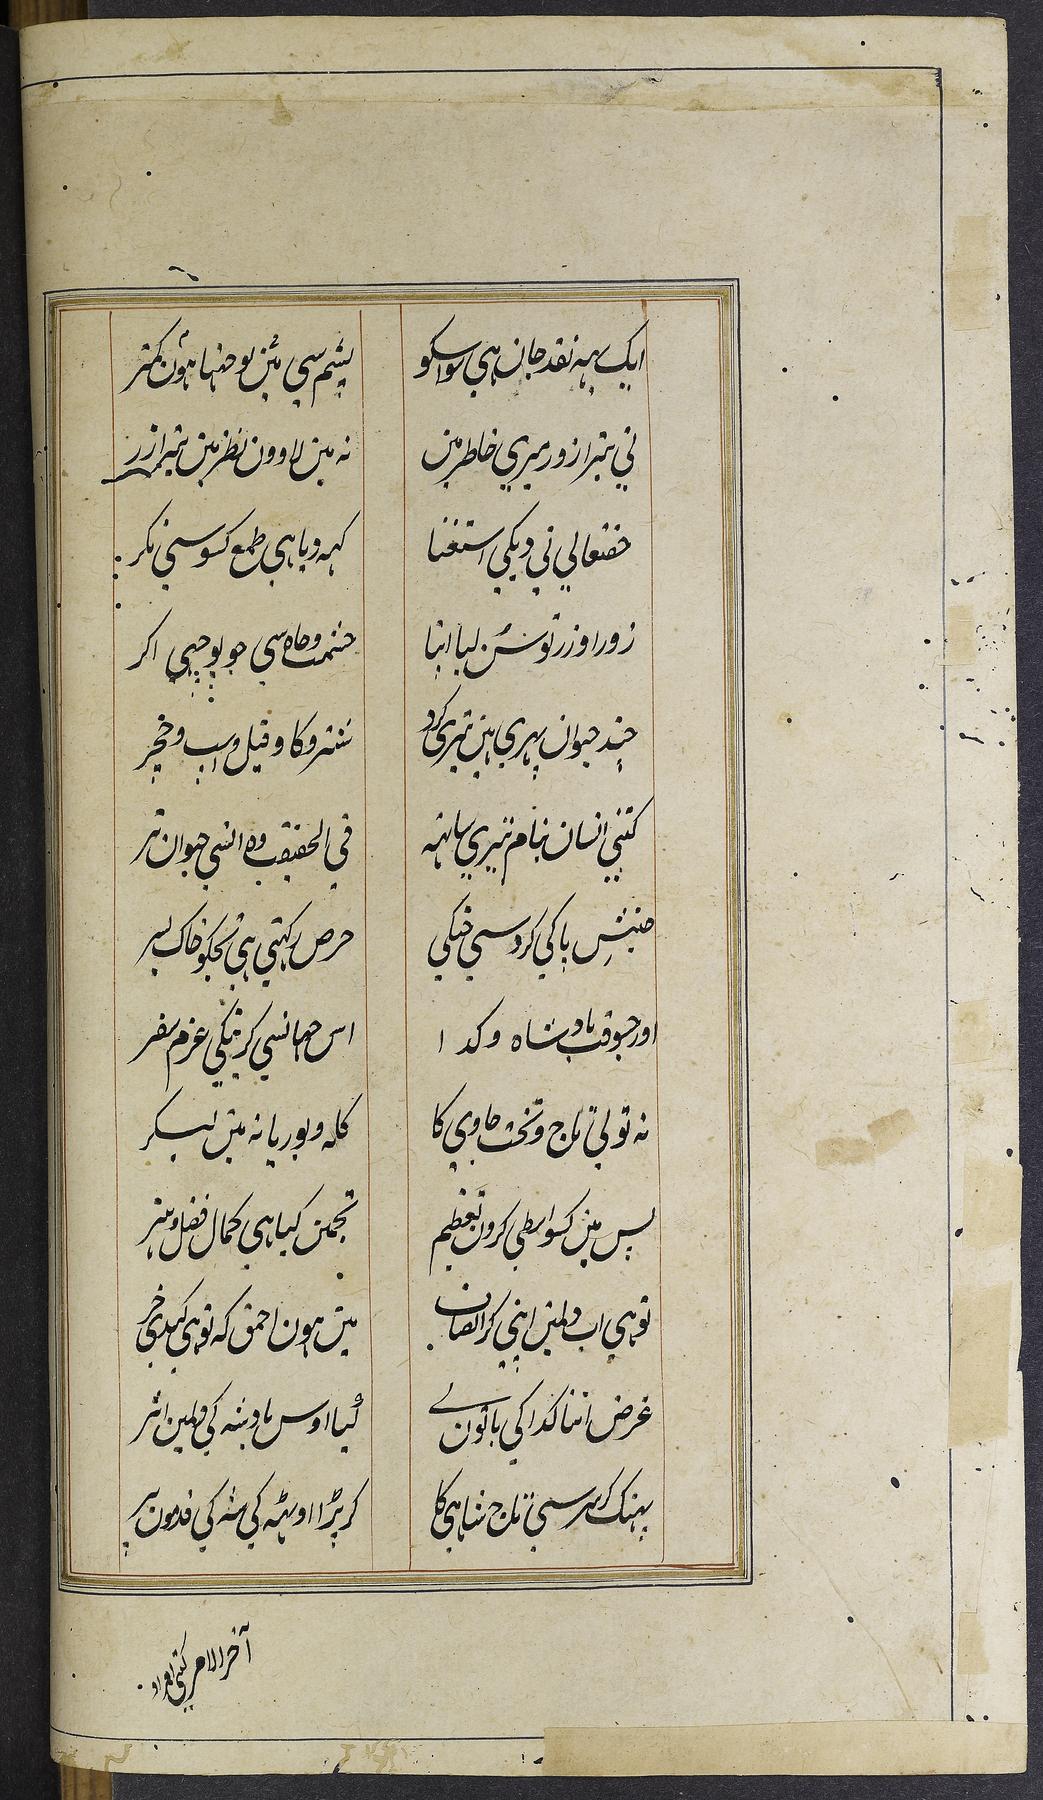 ایک یہہ نقد جان ہی سو اسکو
پشم سی مین بوجہتا ہون کمتر
نی تیرا زور میری خاطر مین
نہ مین لاوون نظر مین تیرا زر
حقتعالی نی دیکی استغنا
کہہ دیا ہی طمع کسو سی نکر
زور اور زر تو سن لیا اپنا
حشمت و جاہ سی جو پوچہی اکر
چند حیوان پہری ہین تیری کرد
شتر و کاو فیل و اسپ و خچر
کتنی انسان بنام تیری ساتہہ
فی الحقیقت وہ انسی حیوان تر
جنبش پا کی کرد سی جنکی
حرص رکہتی ہی تجکو خاک بسر
اور جسوقت بادشاہ و کدا
اس جہانسی کرینکی عزم سفر
نہ تو لی تاج و تخت جاوی کا
کلہ و بوریا نہ مین لیکر
پس مین کسواسطی کرون تعظیم
تجمین کیا ہی کمال فضل و ہنر
تو ہی اب دلمین اپنی کر انصاف
مین ہون احمق کہ تو ہی کیدی خر
غرض اتنا کدا کی باتون نے
کیا اوس بادشہ کی دلمین اثر
پہینک کر سر سی تاج شاہی کا
کر پڑا اوٹہہ کی شہ کی قدمون پر
آخر الامر کتنی